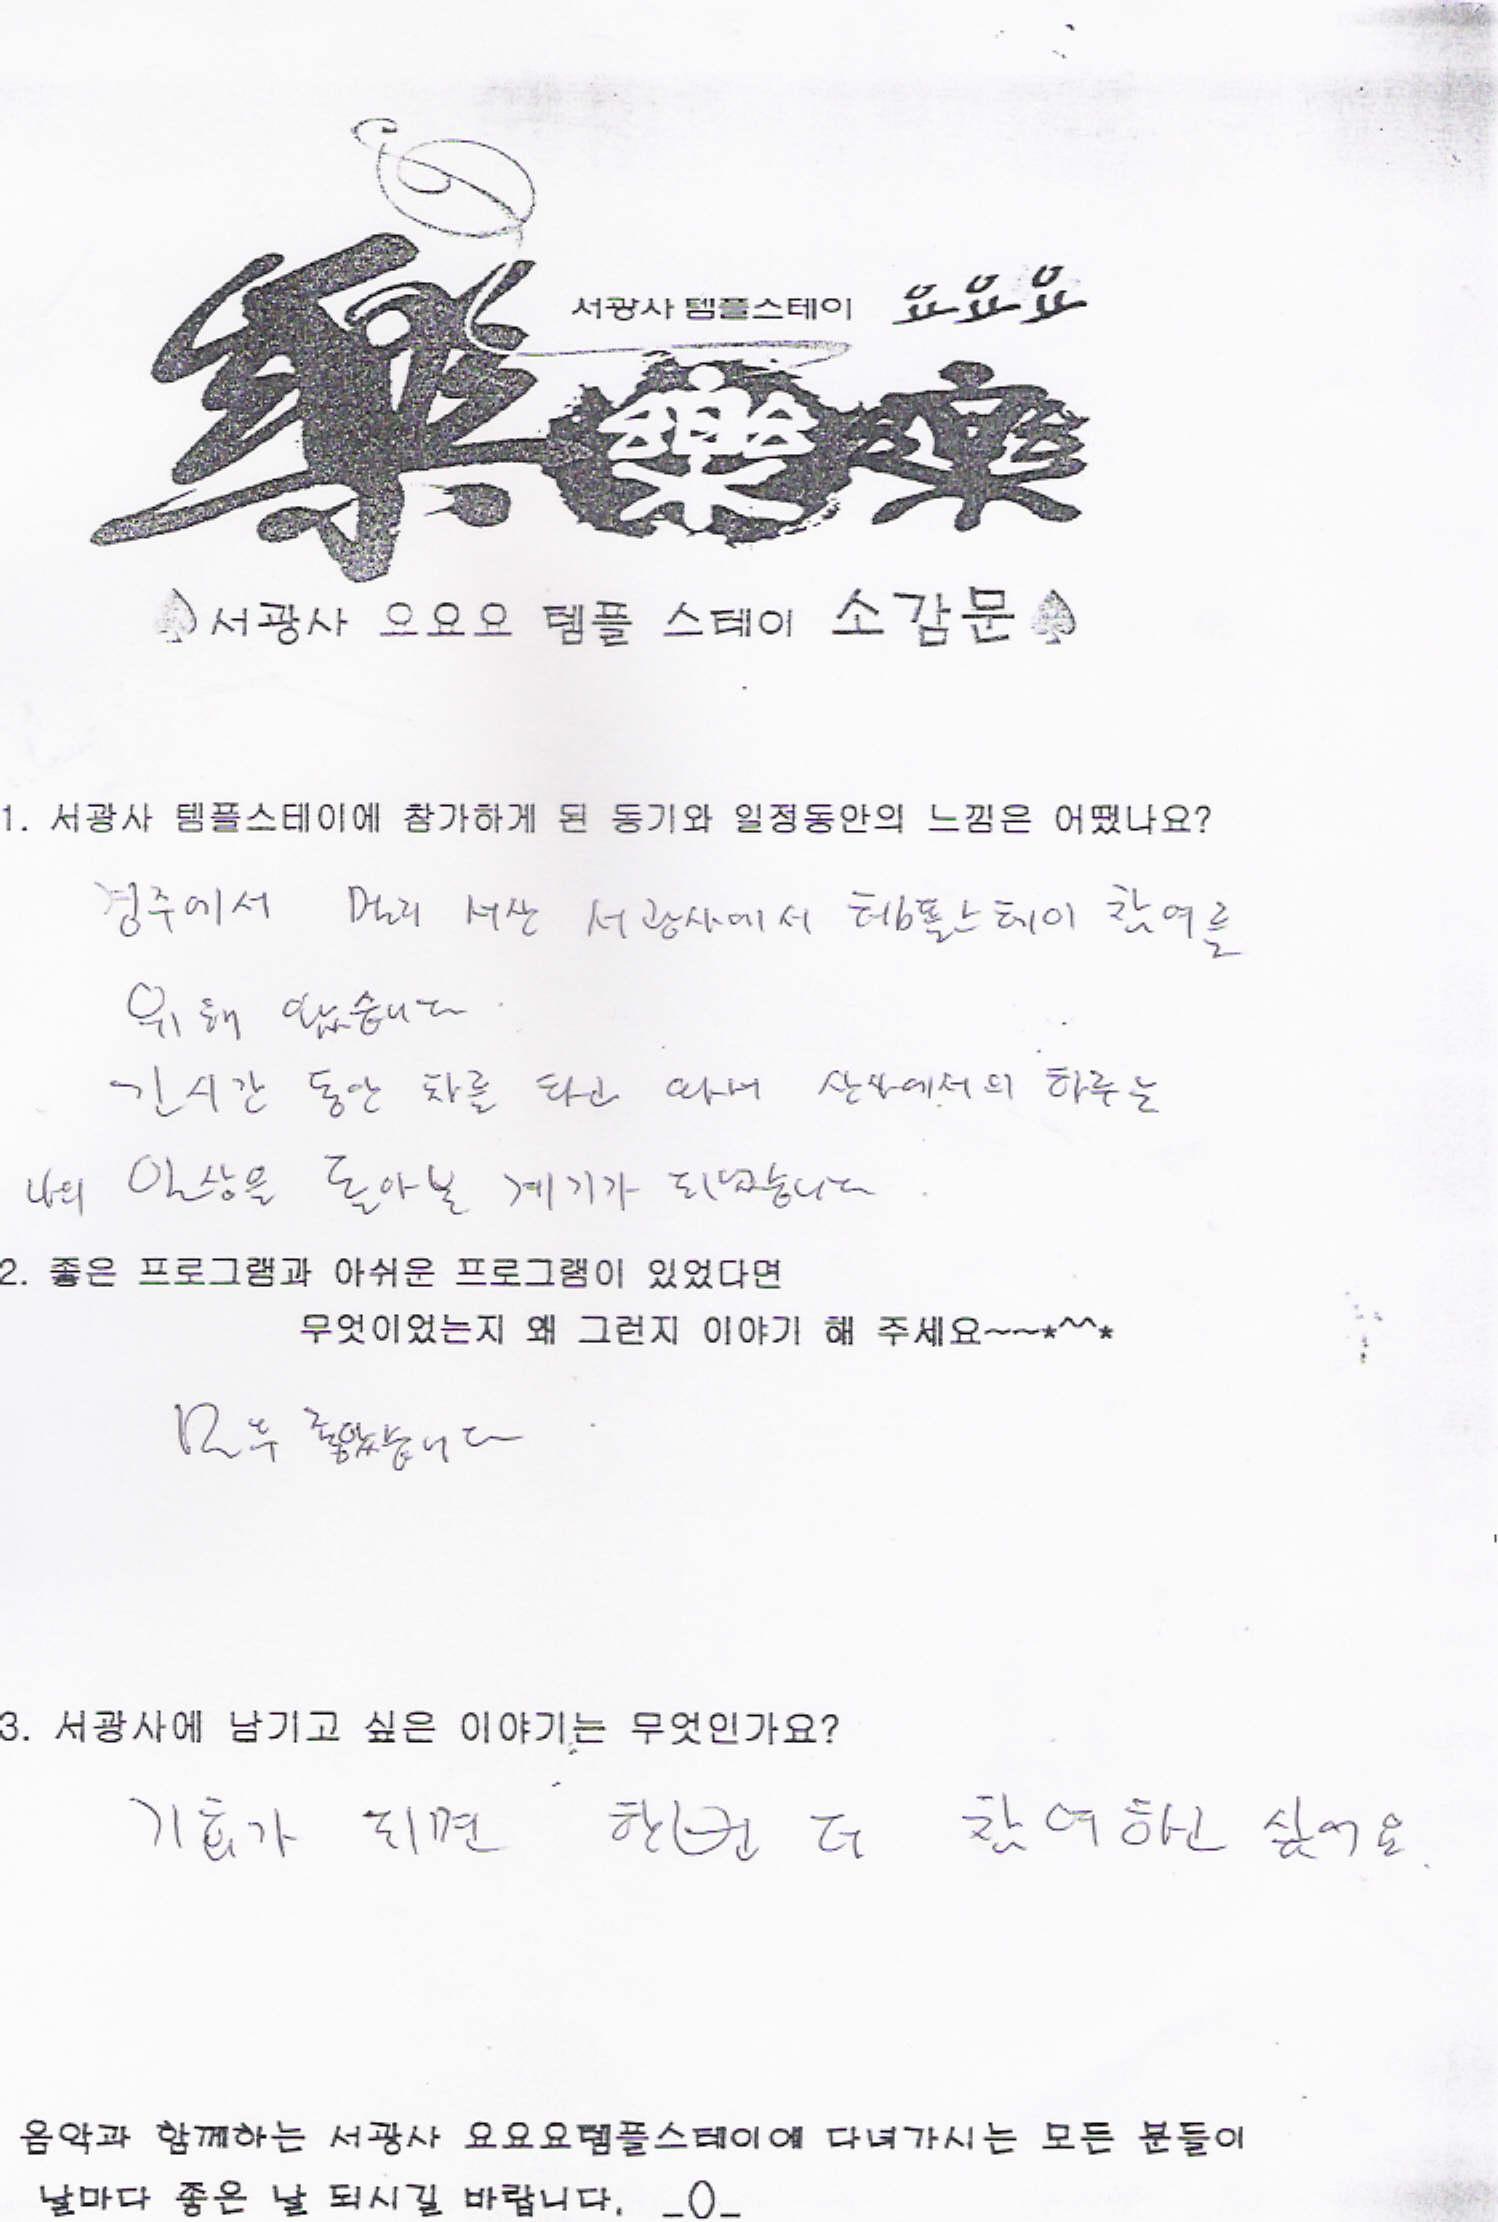 서광사 템플스테이 요요요
樂樂樂
서광사 으요요 템플 스테이 소감문
1. 서광사 템플스테이에 참가하게 된 동기와 일정동안의 느낌은 어땠나요?
경주에서 멀리 서산 서광사에서 템플스테이 참여를
위해 왔습니다.
긴시간 동안 차를 타고 와서 산사에서의 하루는
나의 일상을 돌아볼 계기가 되었습니다.
2. 좋은 프로그램과 아쉬운 프로그램이 있었다면
무엇이었는지 왜 그런지 이야기 해 주세요~~*^^*
모두 좋았습니다.
3. 서광사에 남기고 싶은 이야기는 무엇인가요?
기회가 되면 한번 더 참여하고 싶어요.
음악과 함께하는 서광사 요요요템플스테이에 다녀가시는 모든 분들이
날마다 좋은 날 되시길 바랍니다. _()_